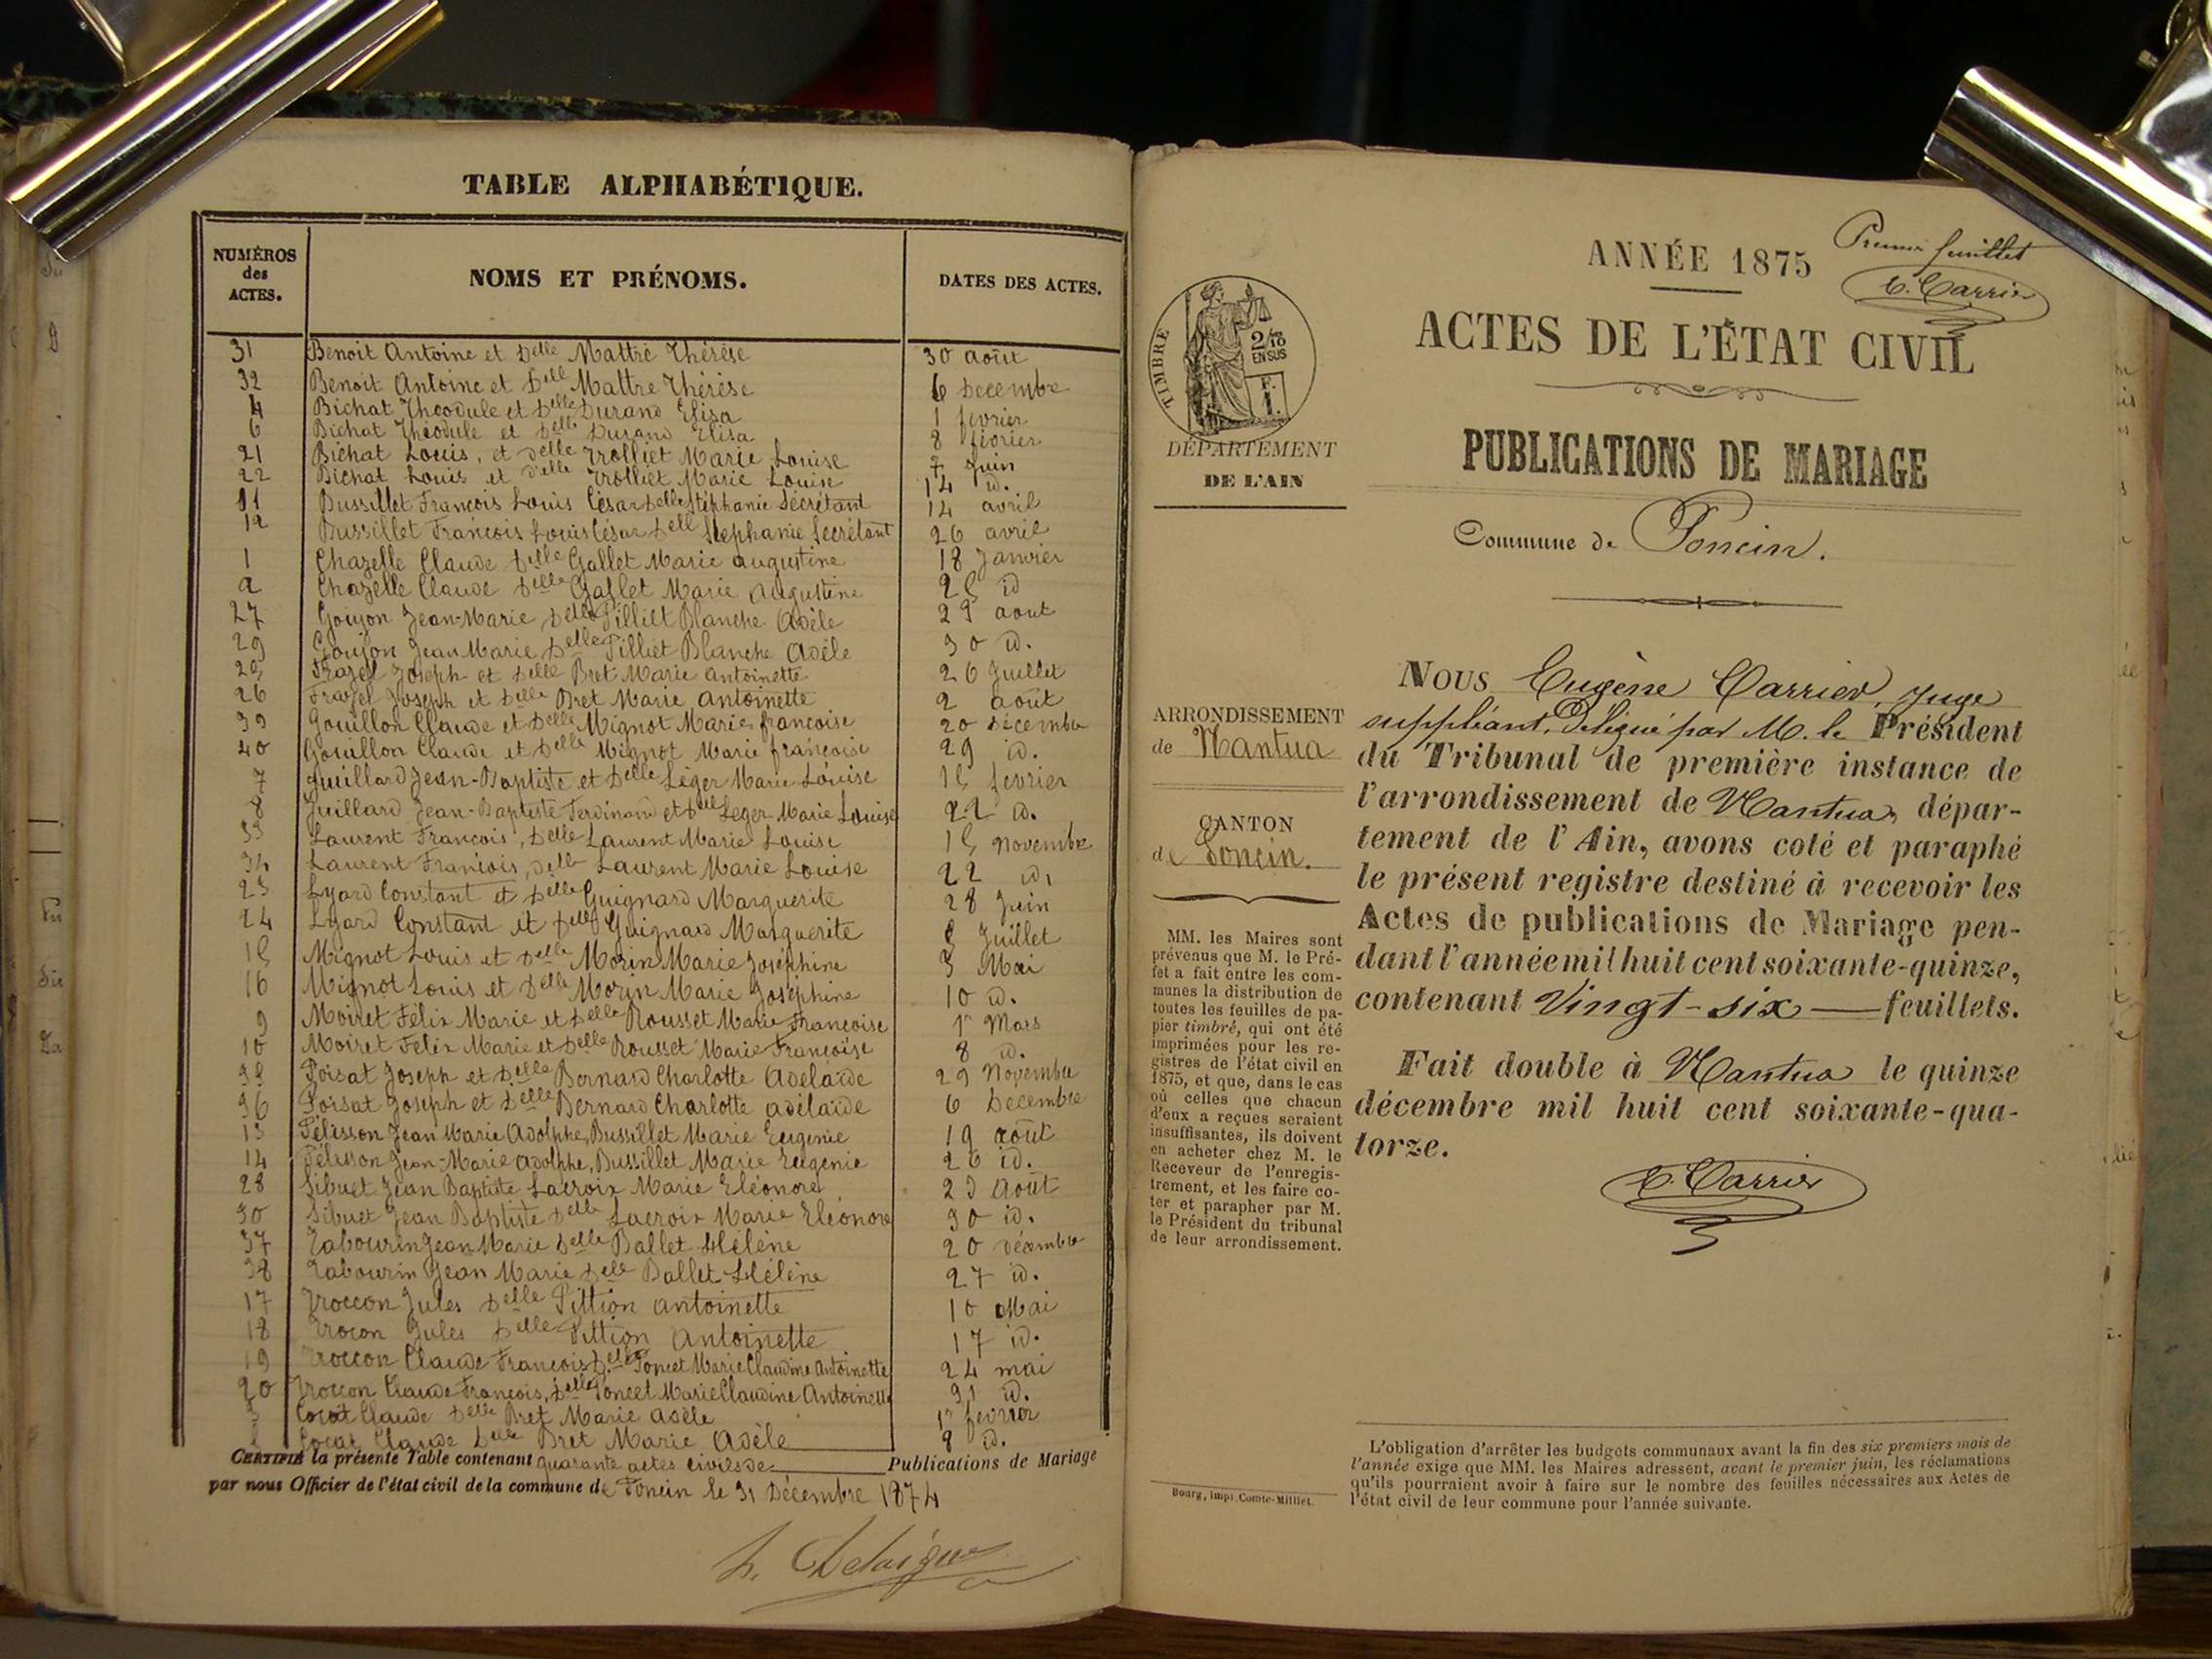 TABLE ALPHABÉTIQUE.
NUMÉROS des ACTES.
NOMS ET PRÉNOMS.
DATES DES ACTES.
31 Benoit Antoine et Delle Mattre Thérèse 30 août
32 Benoit Antoine et Delle Mattre Thérèse 6 Décembre
4 Bichat Théodule et Delle Durand Elisa 1 février
6 Bichat Théodule et Delle Durand Elisa 8 février
21 Bichat Louis, et Delle Trolliet Marie Louise 7 Juin
22 Bichat Louis et Delle Trolliet Marie Louise 14 id.
11 Bussillet François Louis César Delle Stéphanie Secrétant 14 avril
12 Bussillet François Louis César Delle Stéphanie Secrétant 26 avril
1 Chazelle Claude Delle Gallet Marie augustine 18 Janvier
2 Chazelle Claude Delle Gallet Marie Augustine 25 id
27 Goujon Jean-Marie Delle Pilliet Blanche Adèle août
29 Goujon Jean Marie Delle Pilliet Blanche Adèle 30 id.
25 Frazel Joseph et Delle Bret Marie Antoinette 26 Juillet
26 Frazel Joseph et Delle Bret Marie Antoinette 2 août
39 Gouillon Claude et Delle Mignot Marie françoise 20 Décembre
40 Gouillon Claude et Delle Mignot Marie françoise 29 id.
7 Juillard Jean-Baptiste et Delle Léger Marie Louise 15 février
8 Juillard Jean-Baptiste Ferdinand et Delle Leger Marie Louise 22 id.
33 Laurent François, Delle Laurent Marie Louise 15 Novembre
34 Laurent François, Delle Laurent Marie Louise 22 id,
23 Lyard Constant et Delle Guignard Marguerite 28 Juin
24 Lyard Constant et Delle Guignard Marguerite Juillet
15 Mignot Louis et Delle Morin Marie Joséphine 3 Mai
16 Mignot Louis et Delle Morin Marie Joséphine 10 id.
9 Moiret Félix Marie et Delle Rousset Marie Françoise 1r Mars
10 Moiret Félix Marie et Delle Rousset Marie Françoise 8 id.
35 Poisat Joseph et Delle Bernard Charlotte Adélaïde 29 Novembre
36 Poisat Joseph et Delle Bernard Charlotte adélaïde 6 Décembre
13 Pélisson Jean Marie Adolphe, Bussillet Marie Eugenie 19 août
14 Pélisson Jean-Marie Adolphe, Bussillet Marie Eugénie 26 id.
28 Sibuet Jean Baptiste Lacroix Marie Eléonore 23 Août
30 Sibuet Jean Baptiste Delle Lacroix Marie Eléonore 30 id.
37 Tabourin Jean Marie Delle Ballet Hélène 20 décembre
38 Tabourin Jean Marie Delle Ballet Hélène 27 id.
17 Troccon Jules Delle Pittion Antoinette 10 Mai
18 Trocon Jules Delle Pittion Antoinette 17 id.
19 Troccon Claude François Delle Poncet Marie Claudine Antoinette 24 mai
20 Troccon Claude François, Delle Poncet Marie Claudine Antoinette 31 id.
3 Cocat Claude Delle Bret Marie Adèle 1r février
Cocat Claude Delle Bret Marie Adèle 8 id.
CERTIFIÉ la présente Table contenant quarante actes civils de Publications de Mariage
par nous Officier de l'état civil de la commune de Poncin le 31 Décembre 1874
ANNÉE 1875
Premier feuillet
E. Carrier
ACTES DE L'ÉTAT CIVIL
TIMBRE
2/10 EN SUS
DÉPARTEMENT
DE L'AIN
PUBLICATIONS DE MARIAGE
Commune de Poncin.
ARRONDISSEMENT
de Nantua
CANTON
de Poncin.
MM. les Maires sont
prévenus que M. le Pré-
fet a fait entre les com-
munes la distribution de
toutes les feuilles de pa-
pier timbré, qui ont été
imprimées pour les re-
gistres de l'état civil en
1875, et que, dans le cas
où celles que chacun
d'eux a reçues seraient
insuffisantes, ils doivent
en acheter chez M. le
Receveur de l'enregis-
trement, et les faire co-
ter et parapher par M.
le Président du tribunal
de leur arrondissement.
Bourg, impr. Comte-Milliet.
NOUS Eugène Carrier, Juge
suppléant, Délégué par M. le Président
du Tribunal de première instance de
l'arrondissement de Nantua, dépar-
tement de l'Ain, avons coté et paraphé
le présent registre destiné à recevoir les
Actes de publications de Mariage pen-
dant l'année mil huit cent soixante-quinze,
contenant Vingt-six feuillets.
Fait double à Nantua le quinze
décembre mil huit cent soixante-qua-
torze.
E. Carrier
L'obligation d'arrêter les budgets communaux avant la fin des six premiers mois de
l'année exige que MM. les Maires adressent, avant le premier juin, les réclamations
qu'ils pourraient avoir à faire sur le nombre des feuilles nécessaires aux Actes de
l'état civil de leur commune pour l'année suivante.